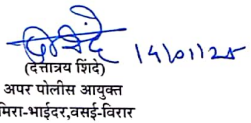 14/01/25
(दत्तात्रय शिंदे)
अपर पोलीस आयुक्त
मिरा-भाईंदर,वसई-विरार